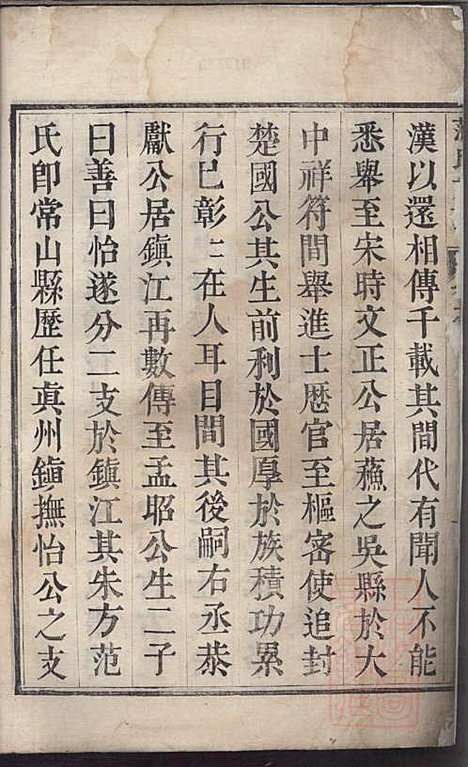 漢以還相傳千載其間代有聞人不能
悉舉至宋時文正公居蘓之吳縣於大
中祥符間舉進士歴官至樞密使追封
楚國公其生前利於國厚於族積功累
行已彰〻在人耳目間其後嗣右丞恭
獻公居鎮江再數傳至孟昭公生二子
曰善曰怡遂分二支於鎮江其朱方范
氏即常山縣歷任真州鎮撫怡公之支